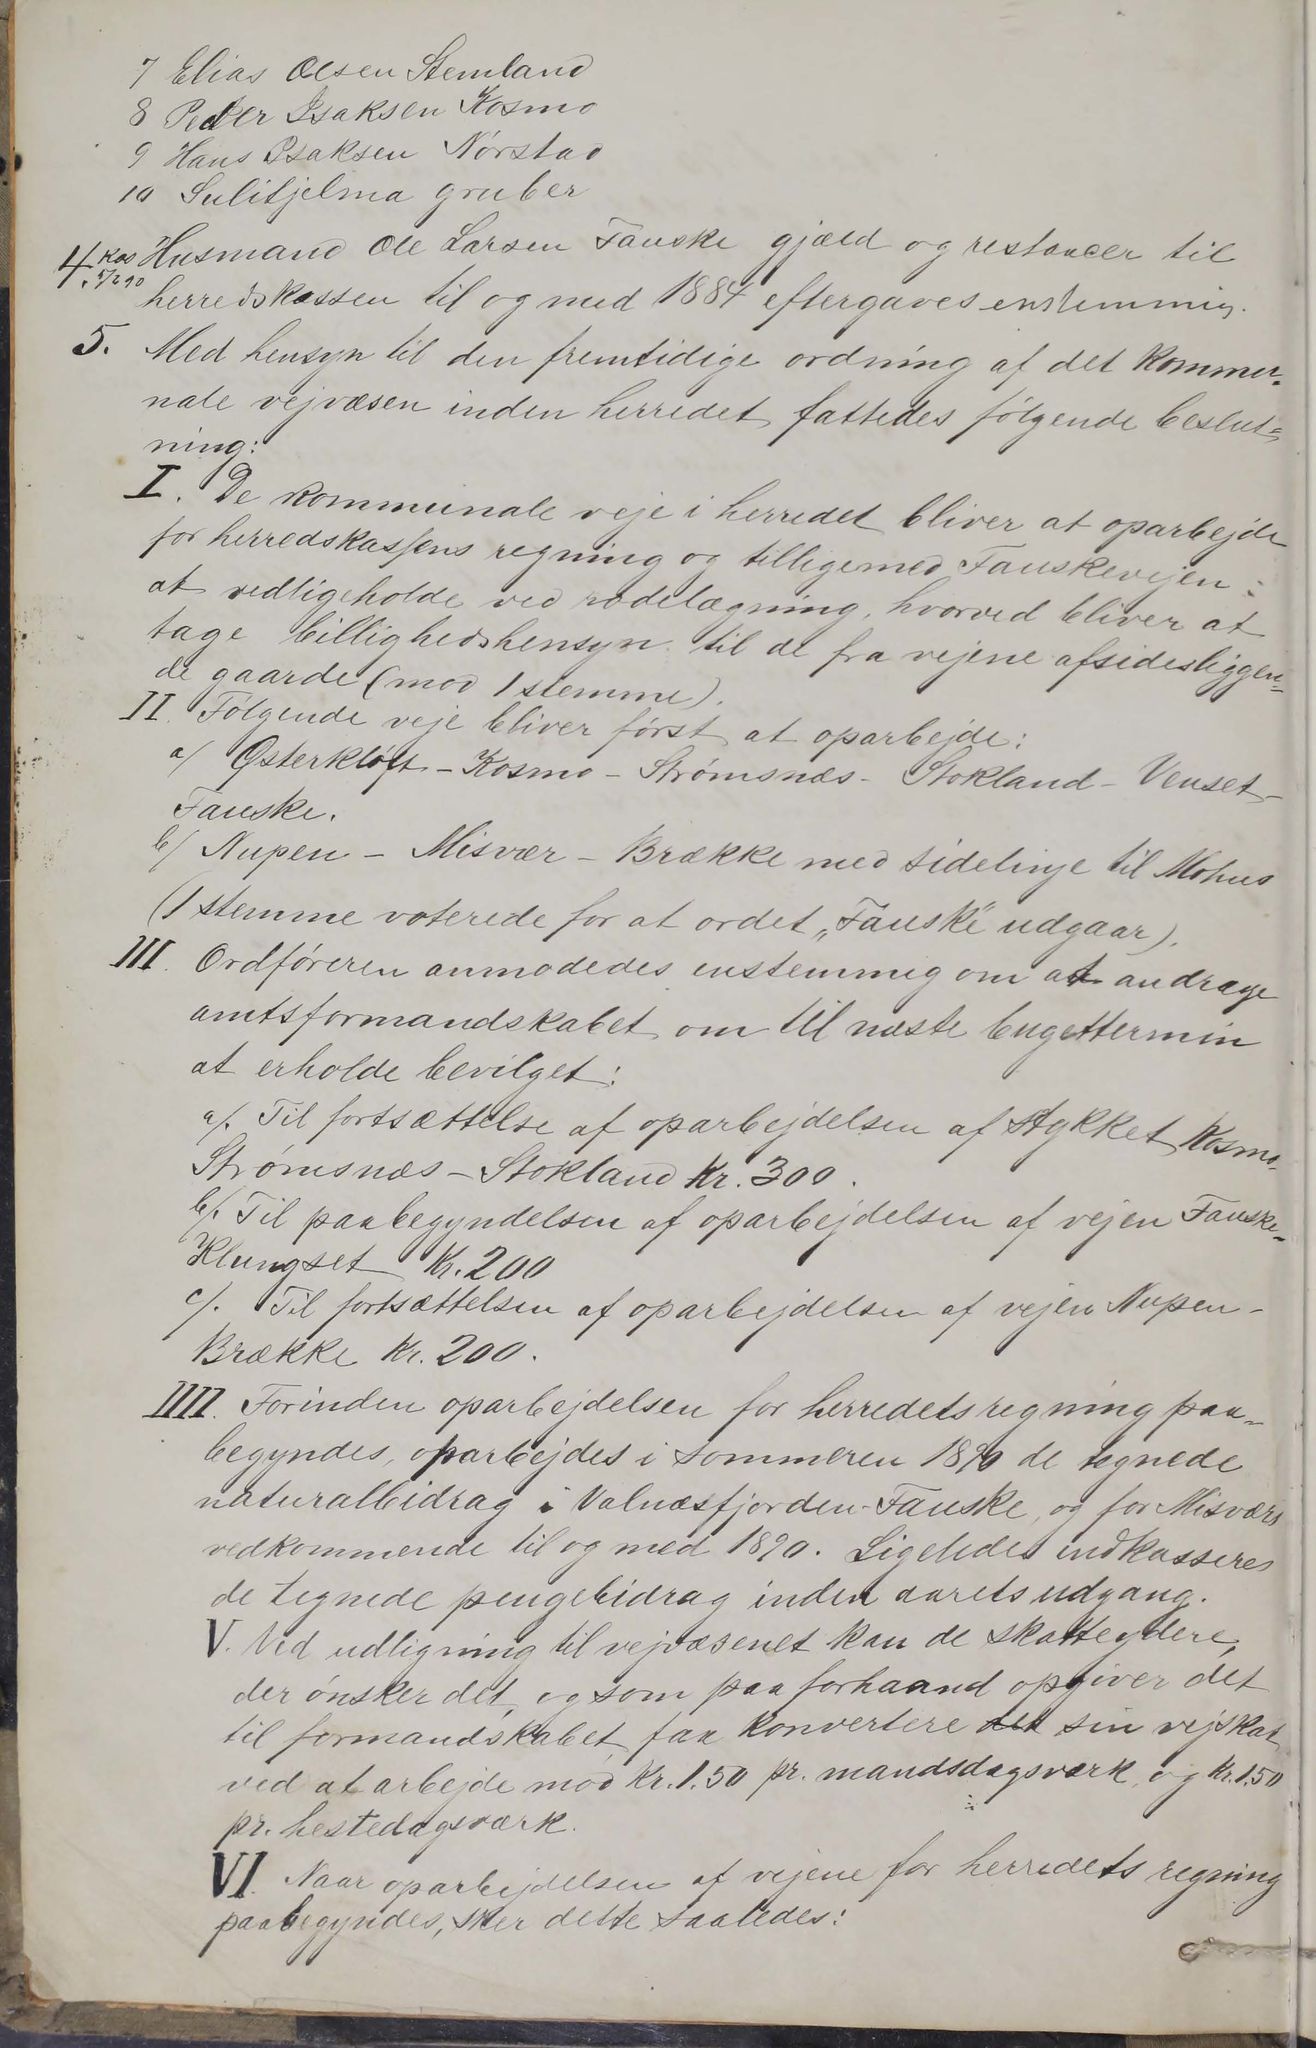 7 Elias Olsen Stemland
8 Peder Isaksen Kosmo
9 Hans Isaksen Nørstad
10 Sulitjelma gruber
4. Husmand Ole Larsen Fauske gjæld og restancer til
herredskassen til og med 1884 eftergaves enstemmig.
5. Med hensyn til den fremtidige ordning af det kommu-
nale vejvæsen inden herredet fattedes følgende beslut=
ning:
I. De kommunale veje i herredet bliver at oparbejde
for herredskassens regning og tilligemed Fauskevejen
at vedligeholde ved rodelægning, hvorved bliver at
tage billighedshensyn til de fra vejene afsidesliggen=
de gaarde (mod 1 stemme).
II. Følgende veje bliver først at oparbejde:
a/ Østerkløft - Kosmo - Strømsnæs - Stokland - Venset -
Fauske.
b/ Nupen - Misvær - Brække med sidelinje til Mohus
(1 stemme voterede for at ordet „Fauske" udgaar).
III. Ordføreren anmodedes enstemmig om at andrage
amtsformandskabet om til næste bugettermin
at erholde bevilget:
a/. Til fortsættelse af oparbejdelsen af stykket Kosmo-
Strømsnæs - Stokland Kr. 300.
b/. Til paabegyndelsen af oparbejdelsen af vejen Fauske=
Klungset Kr. 200
c/. Til fortsættelsen af oparbejdelsen af vejen Nupen -
Brække Kr. 200.
IIII. Forinden oparbejdelsen for herredets regning paa=
begyndes, oparbejdes i sommeren 1890 de tegnede
naturalbidrag i Valnæsfjorden-Fauske, og for Misværs
vedkommende til og med 1890. Ligeledes indkasseres
de tegnede pengebidrag inden aarets udgang.
V. Ved udligning til vejvæsenet kan de skatteydere,
der ønsker det, og som paa forhaand opgiver det
til formandskabet faa konvertere det sin vejskat
ved at arbejde mod Kr. 1.50 pr. mandsdagsværk, og Kr. 1.50
pr. hestedagsværk.
VI. Naar oparbejdelsen af vejene for herredets regning
paabegyndes, sker dette saaledes: